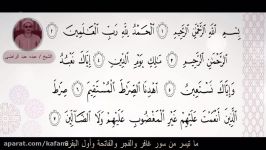 بِسْمِ اللَّهِ الرَّحْمَٰنِ الرَّحِيمِ ١ الْحَمْدُ لِلَّهِ رَبِّ الْعَالَمِينَ ٢
الرَّحْمَٰنِ الرَّحِيمِ ٣ مَالِكِ يَوْمِ الدِّينِ ٤ إِيَّاكَ نَعْبُدُ
وَإِيَّاكَ نَسْتَعِينُ ٥ اهْدِنَا الصِّرَاطَ الْمُسْتَقِيمَ ٦ صِرَاطَ
الَّذِينَ أَنْعَمْتَ عَلَيْهِمْ غَيْرِ الْمَغْضُوبِ عَلَيْهِمْ وَلَا الضَّالِّينَ ٧
الشيخ / عبده عبد الراضي
ما تيسر من سور غافر والفجر والفاتحة وأول البقرة
aparat.com/kafan